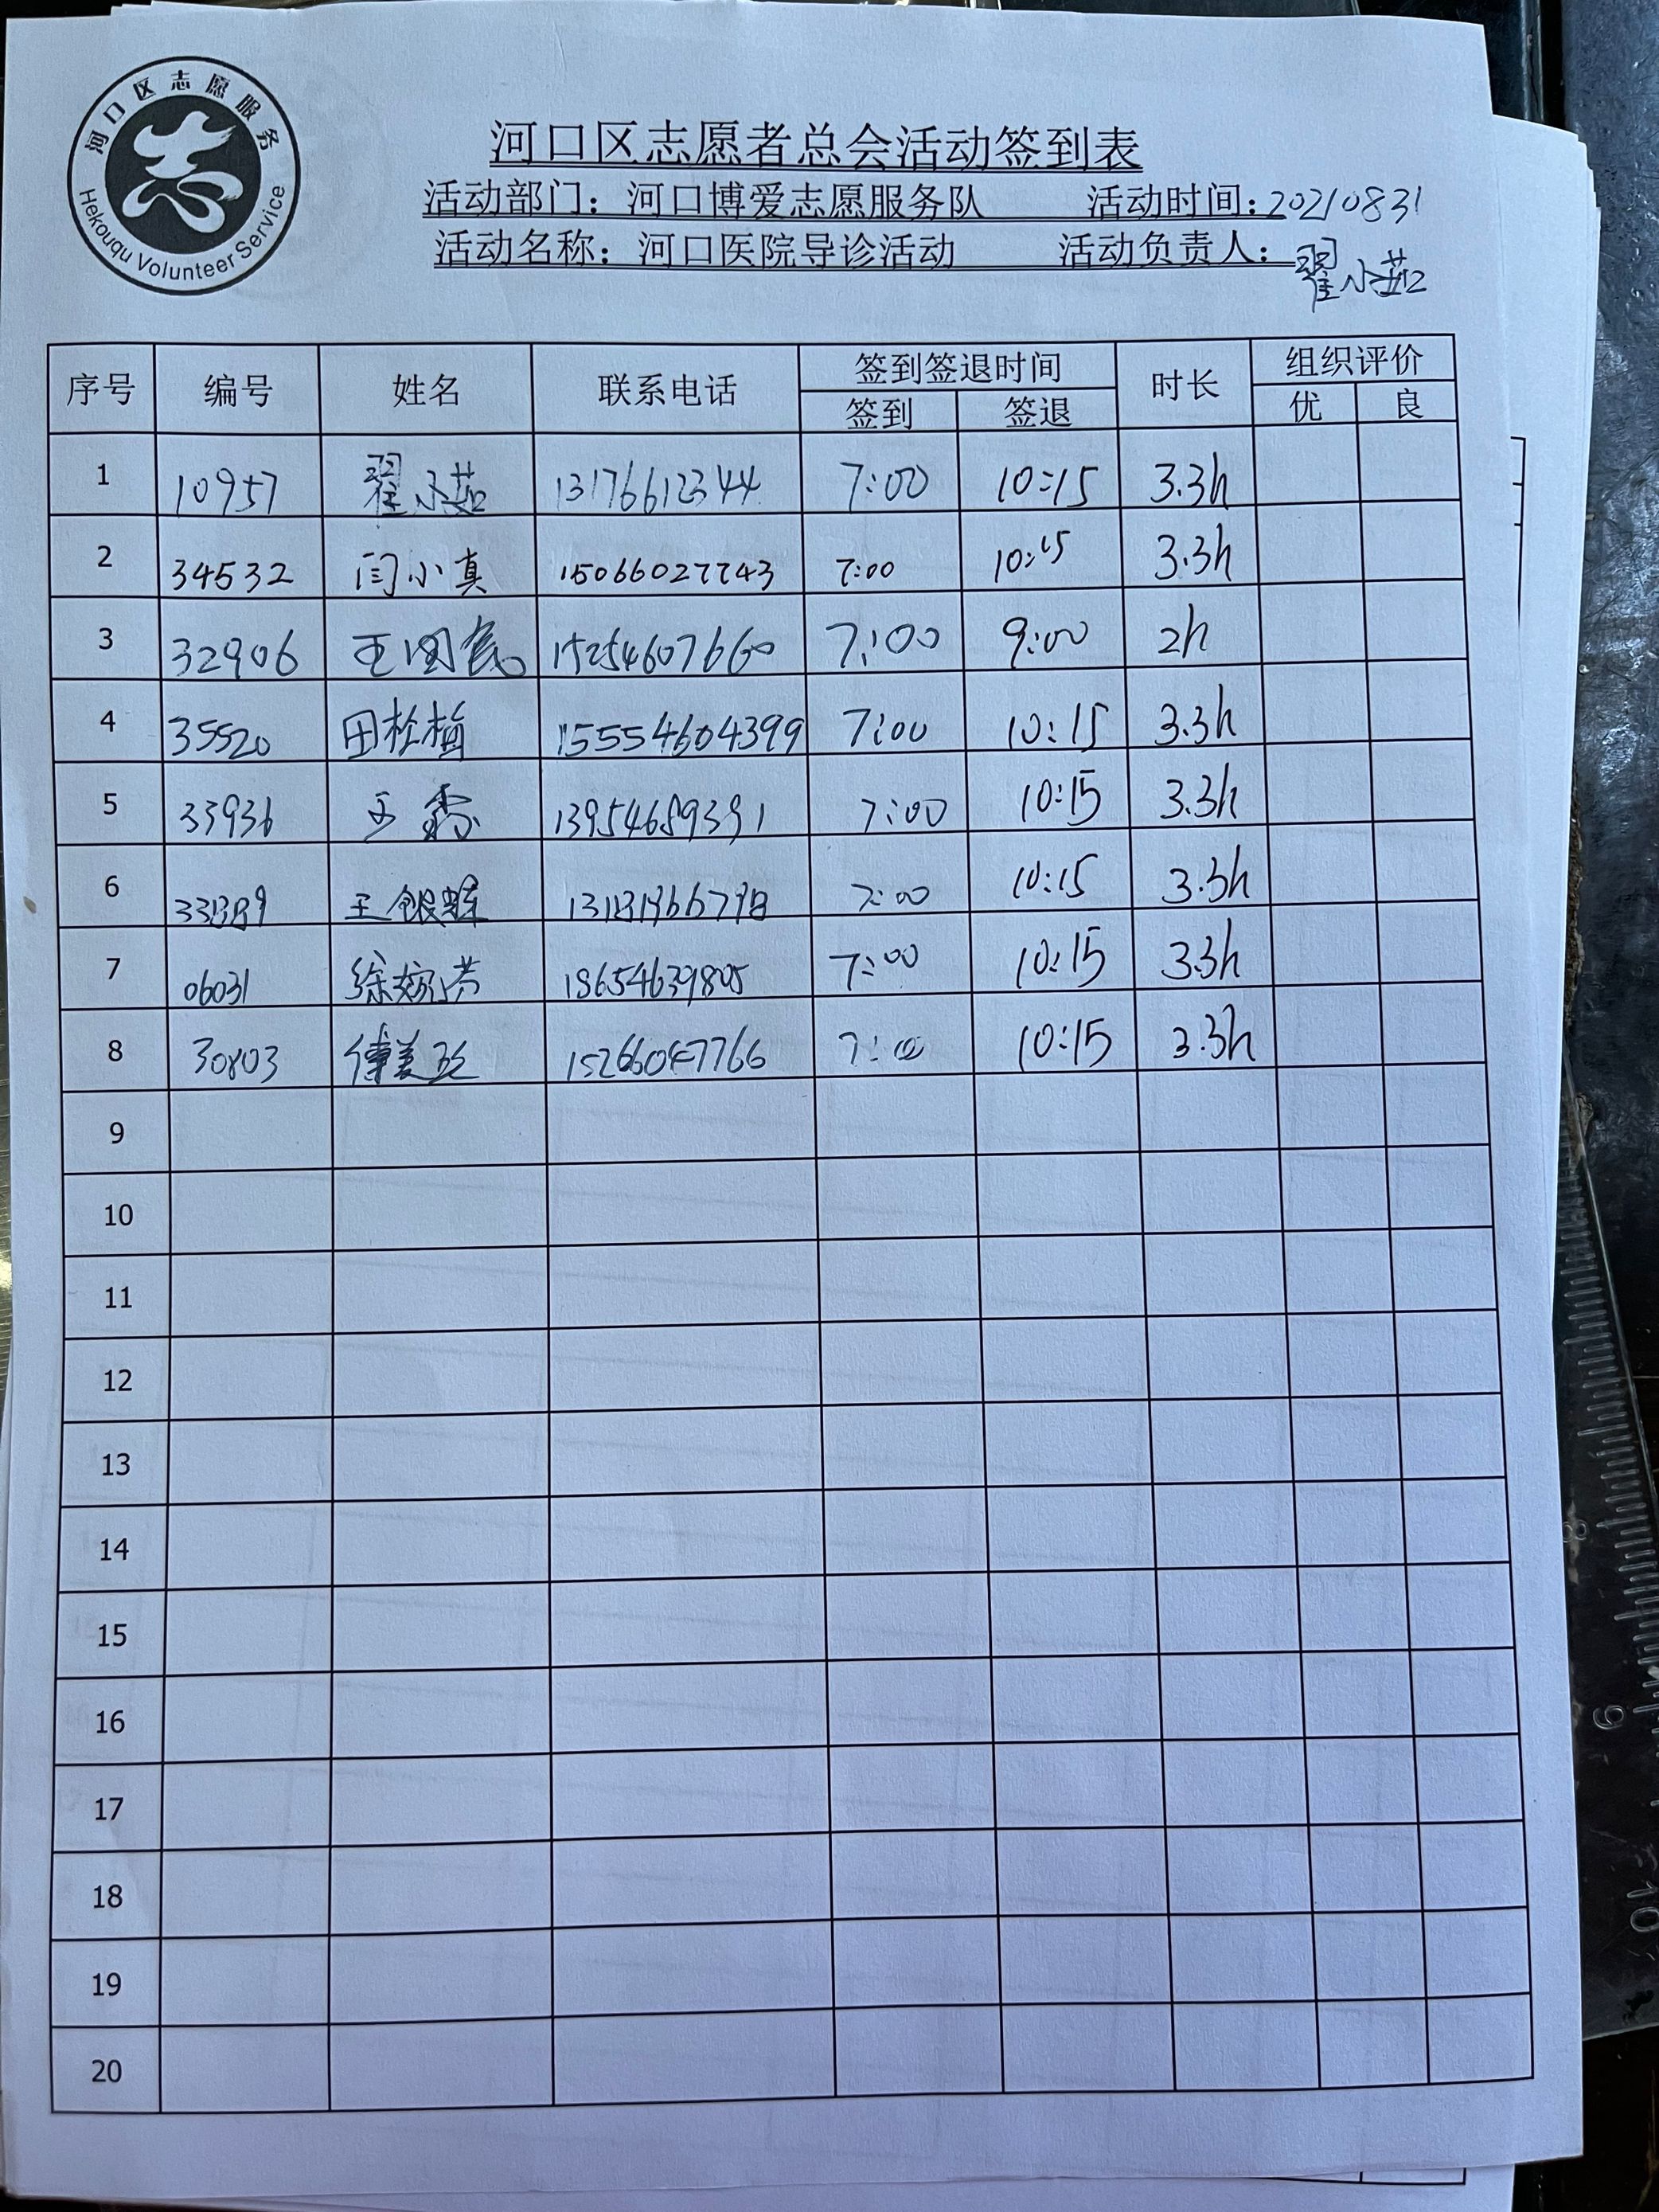 河口区志愿服务
Hekouqu Volunteer Service
河口区志愿者总会活动签到表
活动部门：河口博爱志愿服务队 活动时间：20210831
活动名称：河口医院导诊活动 活动负责人：翟小茹
序号 编号 姓名 联系电话 签到签退时间 时长 组织评价
签到 签退 优 良
1 10957 翟小茹 13176612344 7:00 10:15 3.3h
2 34532 闫小真 15066027743 7:00 10:15 3.3h
3 32906 王国民 15254607660 7:00 9:00 2h
4 35520 田栓梅 15554604399 7:00 10:15 3.3h
5 33936 王霞 13954689391 7:00 10:15 3.3h
6 王银 7:00 10:15 3.3h
7 06031 徐婉芳 18654639805 7:00 10:15 3.3h
8 30803 傅美 15266047766 7:00 10:15 3.3h
9
10
11
12
13
14
15
16
17
18
19
20
9
10